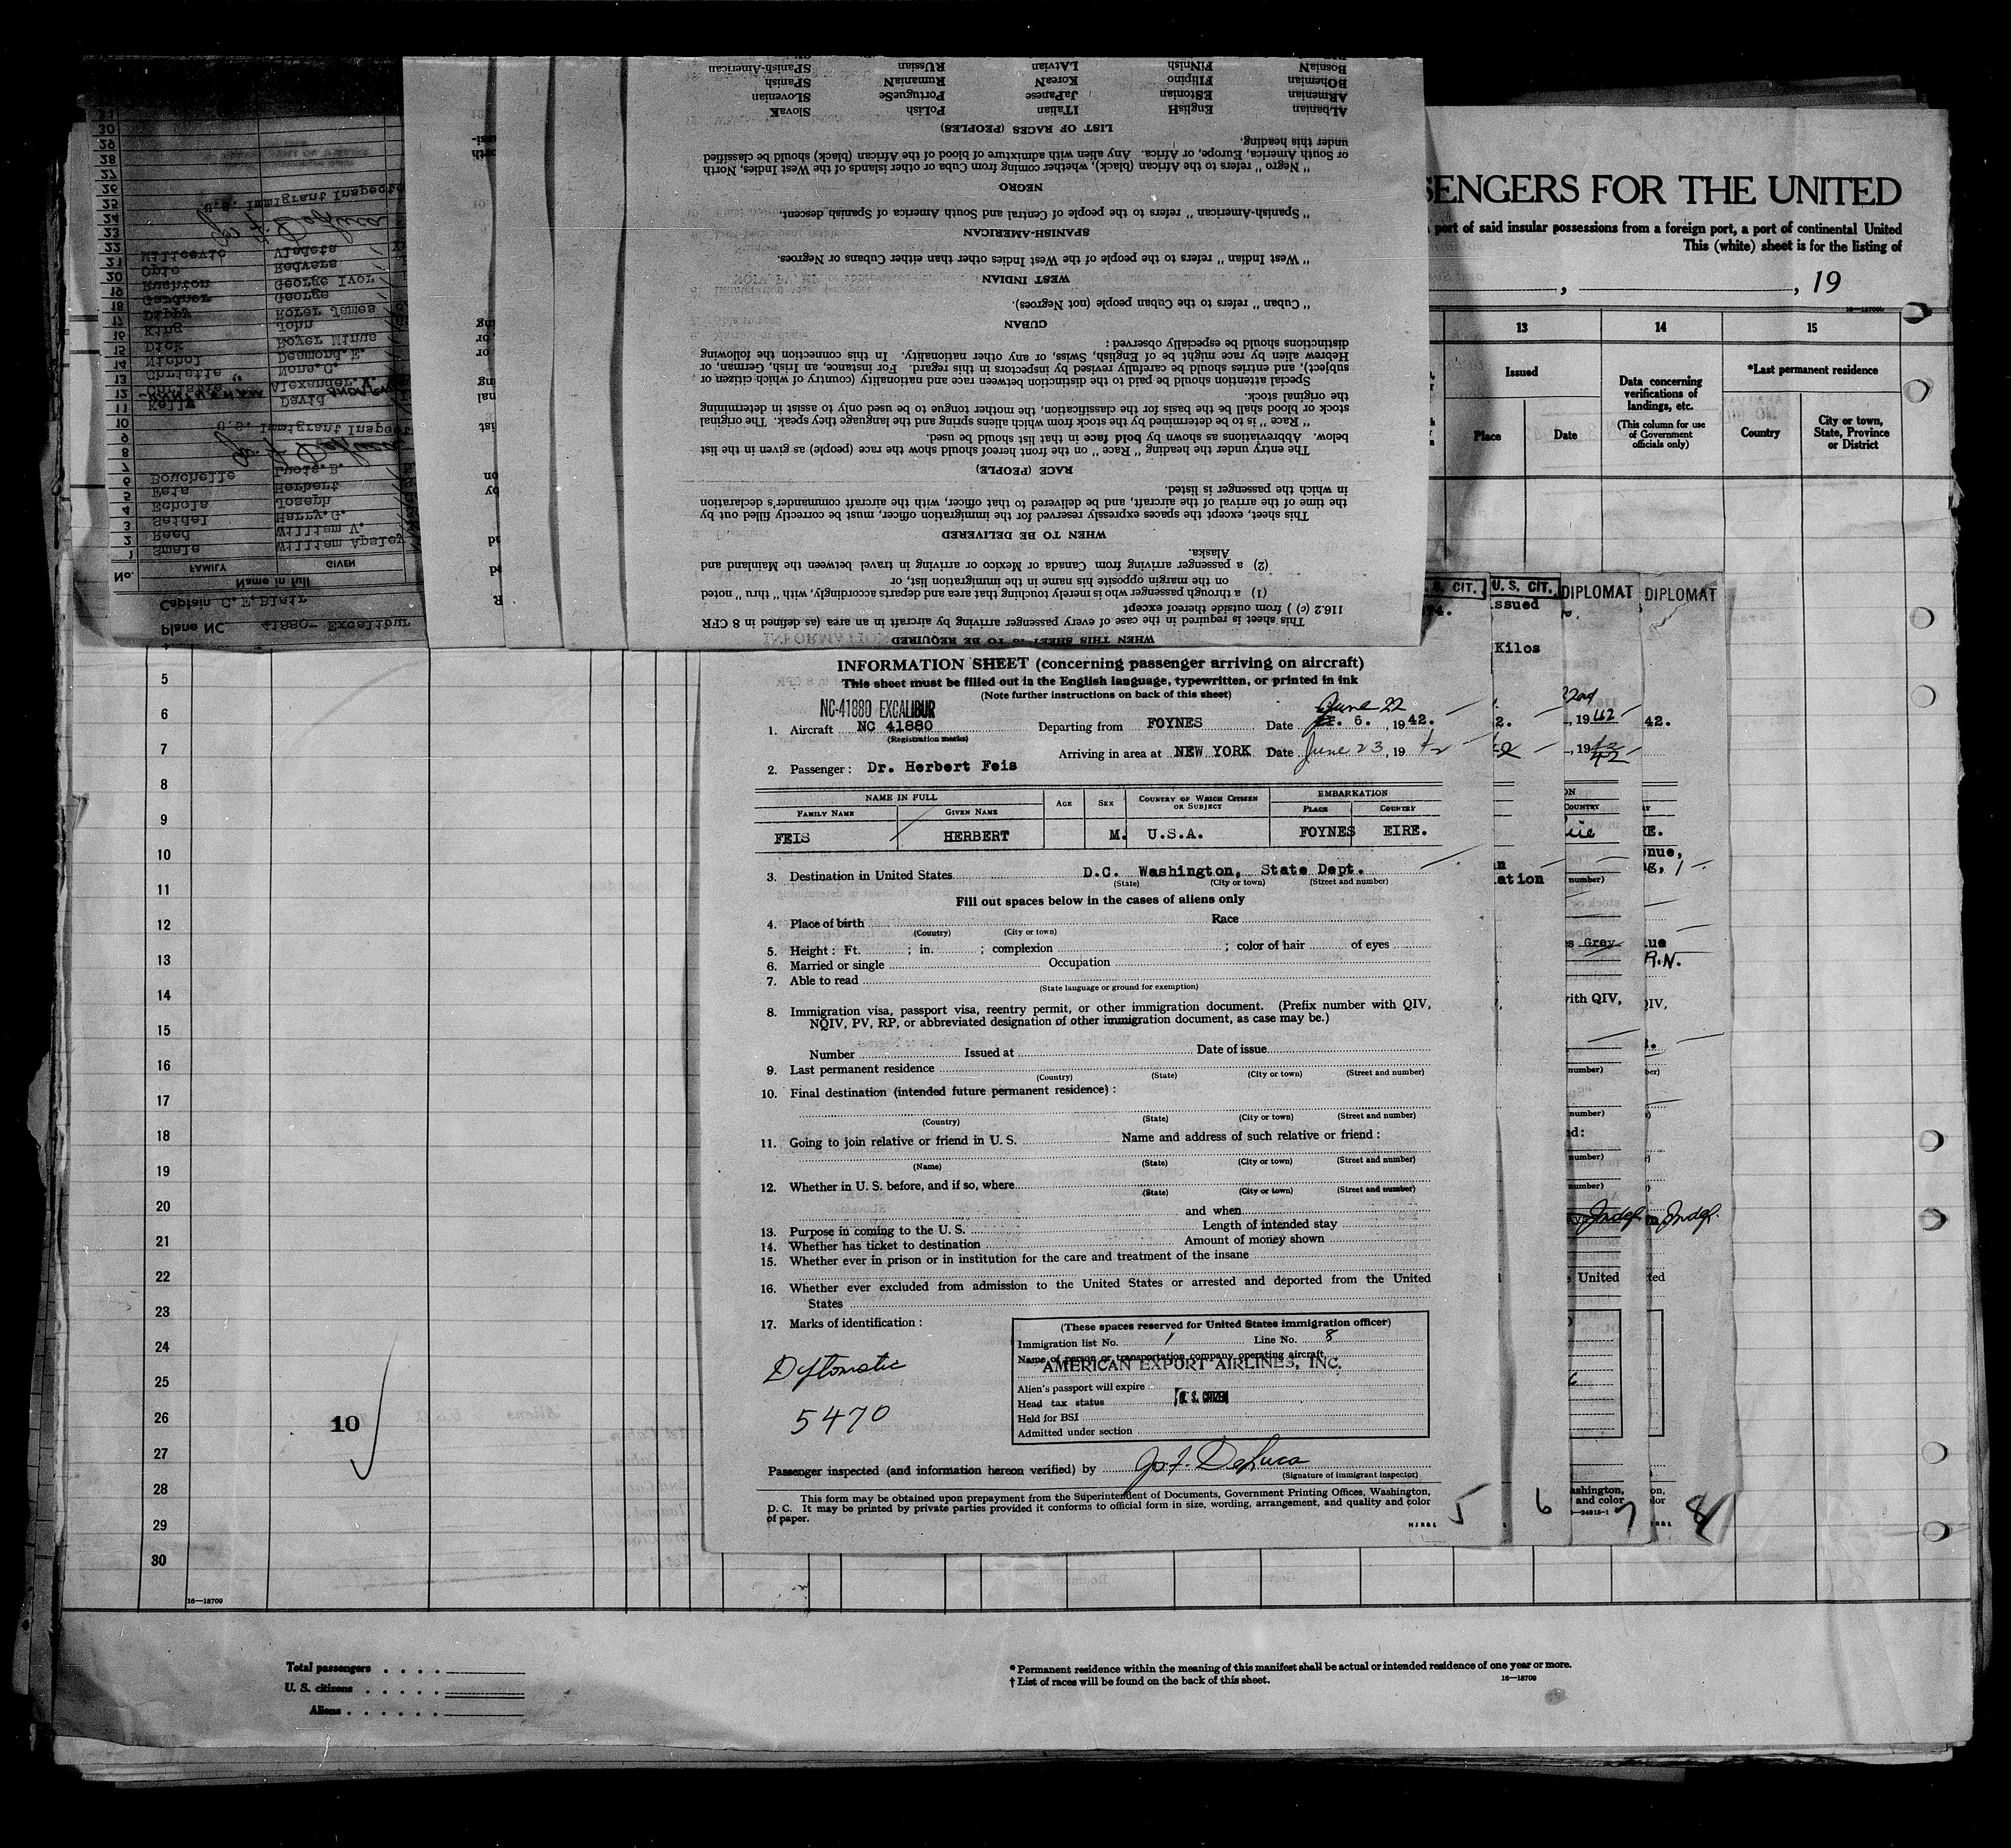 SENGERS FOR THE UNITED
port of said insular possessions from a foreign port, a port of continental United
This (white) sheet is for the listing of
, , 19
16—18709b
13 14 15
Issued
Place Date
Data concerning verifications of landings, etc.
(This column for use of Government officials only)
*Last permanent residence
Country
City or town, State, Province or District
Plane NC 41880- Excalibur
Captain C.E.Blair
Name in full
No. FAMILY GIVEN
1 Smale William Apsley
2 Reed William V.
3 Seidel Harry.G.
4 Echols Joseph
5 Feis Herbert
6 Bouchelle
7
8
9
U.S. Immigrant Inspect
10
11 Kelly David
12 Alexander.V.
13 Christie Nons.C.
14 Nichol Desmond.E.
15 Dick Royer Minus
16 King John
17 Dippy Rorer James
18 Gardner George
19 Rushton George Ivor
20 Opie Redvers
21 Milicevic Vladeta
22
23
24
U.S. Immigrant Inspecto
25
26
27
28
29
30
WHEN THIS SHEET IS TO BE REQUIRED
This sheet is required in the case of every passenger arriving by aircraft in an area (as defined in 8 CFR
116.2 (c) ) from outside thereof except
(1) a through passenger who is merely touching that area and departs accordingly, with "thru" noted
on the margin opposite his name in the immigration list, or
(2) a passenger arriving from Canada or Mexico or arriving in travel between the Mainland and
Alaska.
WHEN TO BE DELIVERED
This sheet, except the spaces expressly reserved for the immigration officer, must be correctly filled out by
the time of the arrival of the aircraft, and be delivered to that officer, with the aircraft commander's declaration
in which the passenger is listed.
RACE (PEOPLE)
The entry under the heading "Race" on the front hereof should show the race (people) as given in the list
below. Abbreviations as shown by bold face in that list should be used.
"Race" is to be determined by the stock from which aliens spring and the language they speak. The original
stock or blood shall be the basis for the classification, the mother tongue to be used only to assist in determining
the original stock.
Special attention should be paid to the distinction between race and nationality (country of which citizen or
subject), and entries should be carefully revised by inspectors in this regard. For instance, an Irish, German, or
Hebrew alien by race might be of English, Swiss, or any other nationality. In this connection the following
distinctions should be especially observed:
CUBAN
"Cuban" refers to the Cuban people (not Negroes).
WEST INDIAN
"West Indian" refers to the people of the West Indies other than either Cubans or Negroes.
SPANISH-AMERICAN
"Spanish-American" refers to the people of Central and South America of Spanish descent.
NEGRO
"Negro" refers to the African (black), whether coming from Cuba or other islands of the West Indies, North
or South America, Europe, or Africa. Any alien with admixture of blood of the African (black) should be classified
under this heading.
LIST OF RACES (PEOPLES)
ALbanian EnglisH ITalian PoLish SlovaK
ARmenian EStonian JaPanese PortugueSe SLovenian
BOhemian FIlipino KoreaN RumaniaN SPanish
BosniaN FiNnish LAtvian RUSsian SPanish-American
INFORMATION SHEET (concerning passenger arriving on aircraft)
This sheet must be filled out in the English language, typewritten, or printed in ink
(Note further instructions on back of this sheet)
NC-41880 EXCALIBUR
June 22
1. Aircraft NC 41880 Departing from FOYNES Date 6. , 19 42.
(Registration marks)
Arriving in area at NEW YORK Date June 23, 19 42
2. Passenger: Dr. Herbert Feis
NAME IN FULL AGE SEX COUNTRY OF WHICH CITIZEN OR SUBJECT EMBARKATION
FAMILY NAME GIVEN NAME PLACE COUNTRY
FEIS HERBERT M. U.S.A. FOYNES EIRE.
3. Destination in United States D.C. Washington, State Dept.
(State) (City or town) (Street and number)
Fill out spaces below in the cases of aliens only
4. Place of birth Race
(Country) (City or town)
5. Height: Ft. ; in. ; complexion ; color of hair of eyes
6. Married or single Occupation
7. Able to read
(State language or ground for exemption)
8. Immigration visa, passport visa, reentry permit, or other immigration document. (Prefix number with QIV,
NQIV, PV, RP, or abbreviated designation of other immigration document, as case may be.)
Number Issued at Date of issue
9. Last permanent residence
(Country) (State) (City or town) (Street and number)
10. Final destination (intended future permanent residence):
(Country) (State) (City or town) (Street and number)
11. Going to join relative or friend in U. S. Name and address of such relative or friend:
(Name) (State) (City or town) (Street and number)
12. Whether in U. S. before, and if so, where
(State) (City or town) (Street and number)
and when
13. Purpose in coming to the U. S. Length of intended stay
14. Whether has ticket to destination Amount of money shown
15. Whether ever in prison or in institution for the care and treatment of the insane
16. Whether ever excluded from admission to the United States or arrested and deported from the United
States
17. Marks of identification:
(These spaces reserved for United States immigration officer)
Immigration list No. 1 Line No. 8
Name of person or transportation company operating aircraft
AMERICAN EXPORT AIRLINES, INC.
Alien's passport will expire
Head tax status U. S. CITIZEN
Held for BSI
Admitted under section
Diplomatic
5470
Passenger inspected (and information hereon verified) by Jos. F. DeLuca
(Signature of immigrant inspector)
This form may be obtained upon prepayment from the Superintendent of Documents, Government Printing Offices, Washington,
D. C. It may be printed by private parties provided it conforms to official form in size, wording, arrangement, and quality and color
of paper.
5 6 7 8
S. CIT. U. S. CIT. DIPLOMAT DIPLOMAT
ssued
Kilos
22nd
, 1942 42.
COUNTRY
nue,
ation
Grey
R.N.
with QIV, QIV,
number)
Indef. Indef.
United
ashington,
and color
5
6
7
8
9
10
11
12
13
14
15
16
17
18
19
20
21
22
23
24
25
26
27
28
29
30
10
16—18709
Total passengers . . . .
U. S. citizens . . . . .
Aliens . . . . . .
* Permanent residence within the meaning of this manifest shall be actual or intended residence of one year or more.
† List of races will be found on the back of this sheet. 16—18709